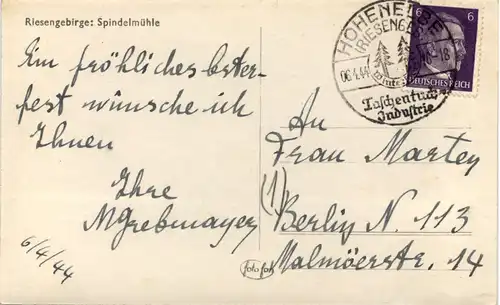 Riesengebirge: Spindelmühle
Ein fröhliches Oster-
fest wünsche ich
Ihnen
Ihre
MGrebmayer
6/4/44
HOHENELBE
(RIESENGEB
06.4.44
-18
Winter
Taschentuch
Industrie
6
6
DEUTSCHES REICH
An
Frau Martey
(1) Berlin N. 113
Malmöerstr. 14
fotofon